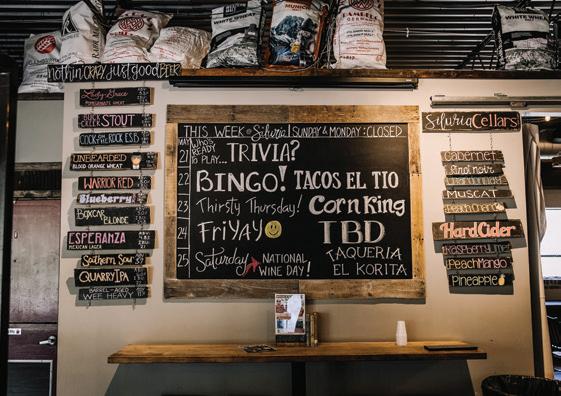 WHITE WHEAT
MUNICH
WHITE WHEAT
nothin' CRAZY, just good BEER
Lady Grace
POMEGRANATE WHEAT
BUCK CREEK STOUT
COCK ON THE ROCK ESB
UNBEARDED
BLOOD ORANGE WHEAT
WARRIOR RED
Blueberry
BOXCAR BLONDE
ESPERANZA
MEXICAN LAGER
Southern Sour
QUARRY IPA
BARREL-AGED
WEE HEAVY
THIS WEEK @ Siluria SUNDAY & MONDAY: CLOSED
MAY
21 WHO'S READY TO PLAY... TRIVIA?
22 BINGO! TACOS EL TIO
23 Thirsty Thursday! Corn King
24 FriYAY TBD
25 Saturday NATIONAL WINE DAY! TAQUERIA EL KORITA
Siluria Cellars
CABERNET
Pinot noir
MUSCAT
Hard Cider
Raspberry Lime
Peach Mango
Pineapple